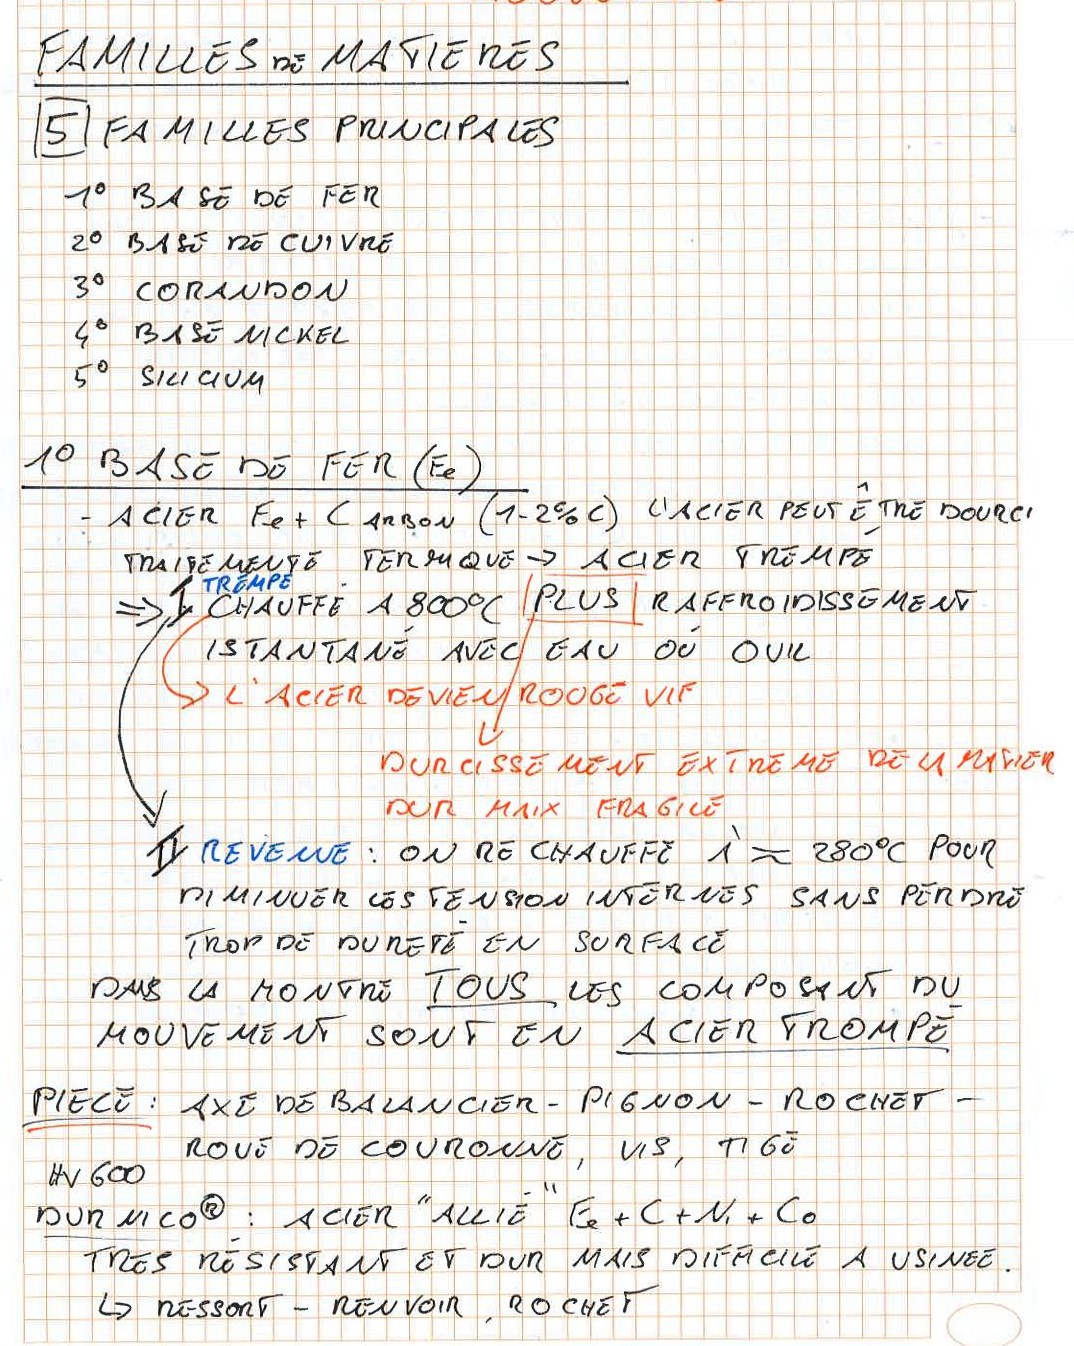 FAMILLES DE MATIERES
5 FAMILLES PRINCIPALES
1° BASE DE FER
2° BASE DE CUIVRE
3° CORANDON
4° BASE NICKEL
5° SILICIUM
1° BASE DE FER (Fe)
- ACIER Fe + CARBON (1-2% C) L'ACIER PEUT ÊTRE DOURCI
TRAITEMENTE TERMIQUE → ACIER TREMPÉ
TREMPE
⇒ I CHAUFFE A 800°C PLUS RAFFROIDISSEMENT
ISTANTANÉ AVEC EAU OÙ OUIL
L'ACIER DEVIEN ROUGE VIF
DURCISSEMENT EXTREME DE LA MATIER
DUR MAIX FRAGILE
II REVENUE : ON RE CHAUFFE À ≈ 280°C POUR
DIMINUER LES TENSION INTERNES SANS PERDRE
TROP DE DURETÉ EN SURFACE
DANS LA MONTRE TOUS LES COMPOSANT DU
MOUVEMENT SONT EN ACIER TROMPÉ
PIECE : AXE DE BALANCIER - PIGNON - ROCHET -
ROUE DE COURONNE, VIS, TIGE
HV 600
DURNICO® : ACIER "ALLIÉ" Fe + C + Ni + Co
TRES RÉSISTANT ET DUR MAIS DIFFICILE A USINEE.
↳ RESSORT - RENVOIR, ROCHET